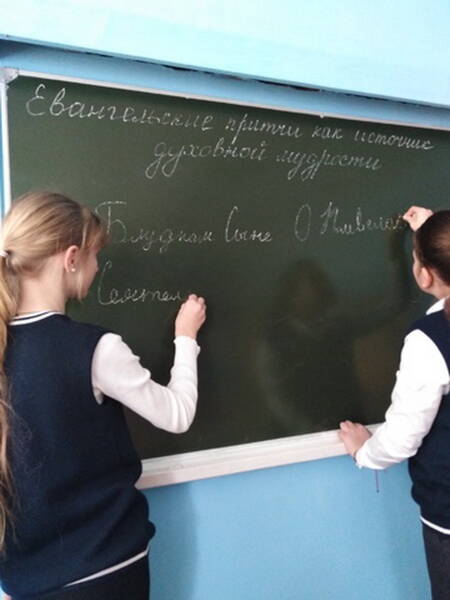 Евангельские притчи как источник
духовной мудрости
Блудном Сыне О Плевелах
Сеятел